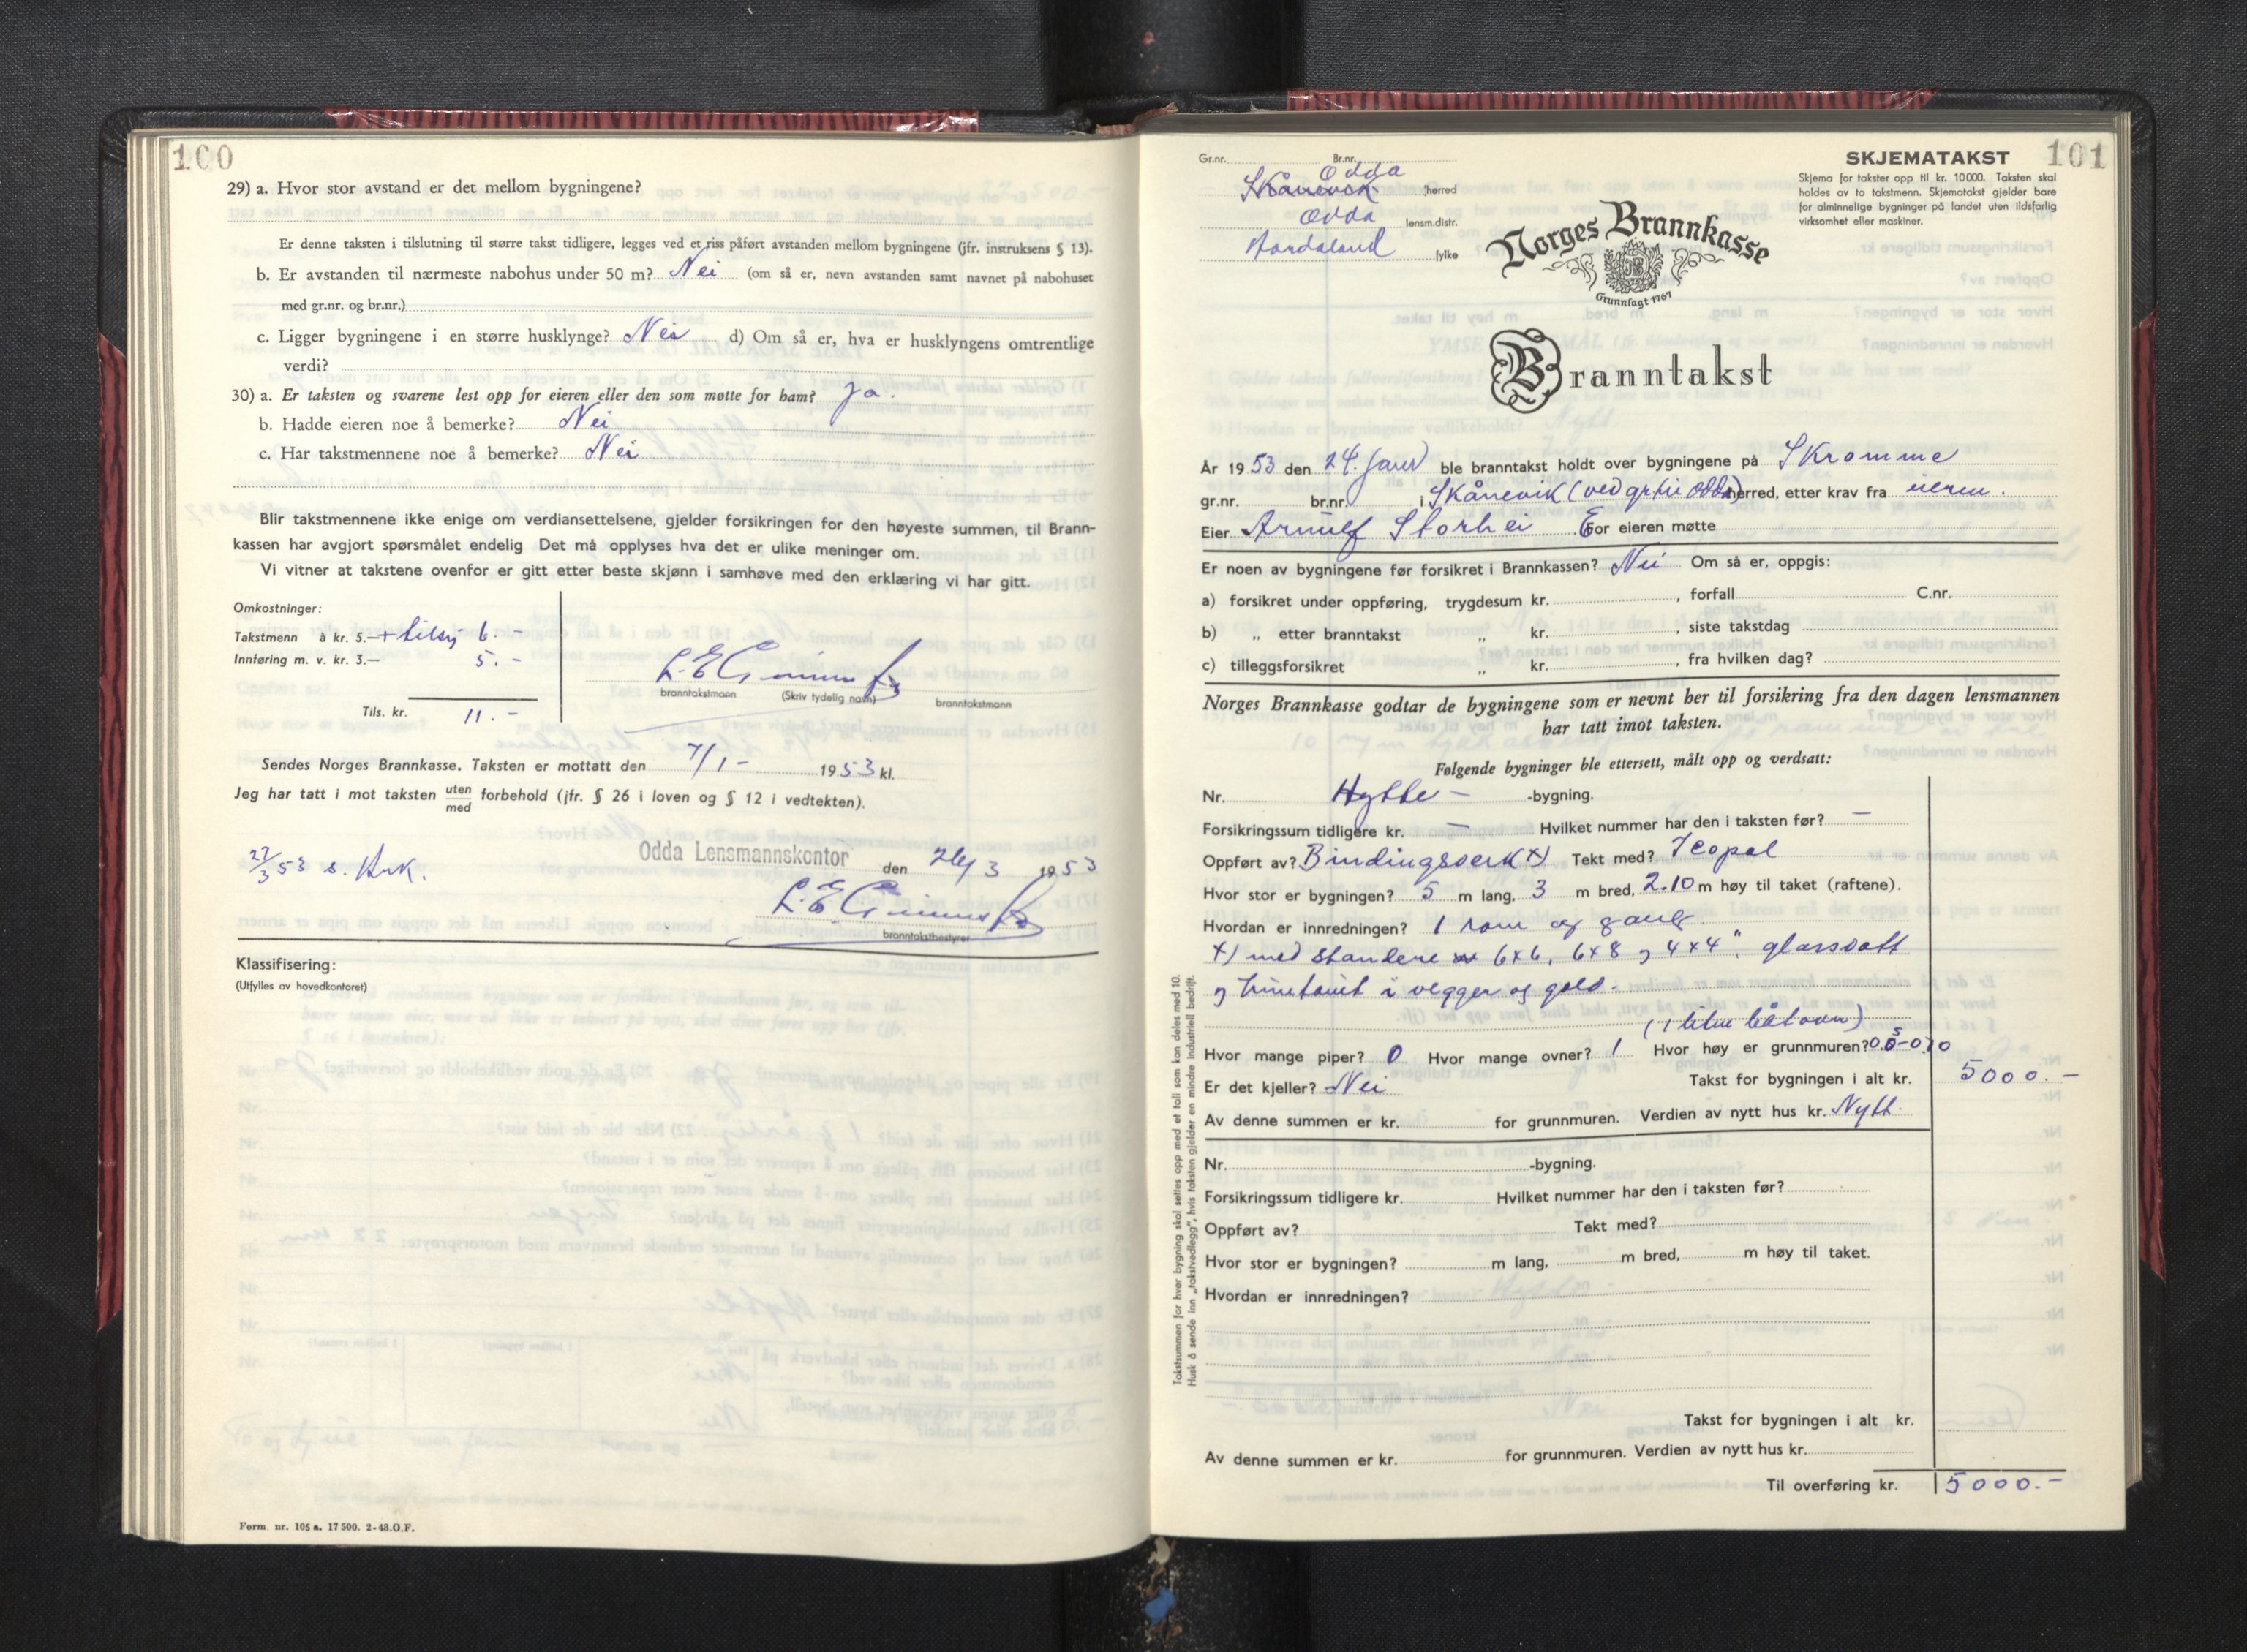 100
29) a. Hvor stor avstand er det mellom bygningene?
Er denne taksten i tilslutning til større takst tidligere, legges ved et riss påført avstanden mellom bygningene (jfr. instruksens § 13).
b. Er avstanden til nærmeste nabohus under 50 m? Nei (om så er, nevn avstanden samt navnet på nabohuset
med gr.nr. og br.nr.)
c. Ligger bygningene i en større husklynge? Nei d) Om så er, hva er husklyngens omtrentlige
verdi?
30) a. Er taksten og svarene lest opp for eieren eller den som møtte for ham? Ja.
b. Hadde eieren noe å bemerke? Nei
c. Har takstmennene noe å bemerke? Nei
Blir takstmennene ikke enige om verdiansettelsene, gjelder forsikringen for den høyeste summen, til Brann-
kassen har avgjort spørsmålet endelig Det må opplyses hva det er ulike meninger om.
Vi vitner at takstene ovenfor er gitt etter beste skjønn i samhøve med den erklæring vi har gitt.
Omkostninger:
Takstmenn à kr. 5.— 6.-
Innføring m. v. kr. 3.— 5.-
branntakstmann (Skriv tydelig navn) branntakstmann
Tils. kr. 11.-
Sendes Norges Brannkasse. Taksten er mottatt den 7/1- 1953 kl.
Jeg har tatt i mot taksten uten/med forbehold (jfr. § 26 i loven og § 12 i vedtekten).
27/3 53 s.
Odda Lensmannskontor den 26/3 1953
branntakstbestyrer
Klassifisering:
(Utfylles av hovedkontoret)
Form. nr. 105 a. 17 500. 2-48.O.F.
Gr.nr. Br.nr.
SKJEMATAKST 101
Skånevik Odda herred
Odda lensm.distr.
Hordaland fylke
Skjema for takster opp til kr. 10000. Taksten skal
holdes av to takstmenn. Skjematakst gjelder bare
for alminnelige bygninger på landet uten ildsfarlig
virksomhet eller maskiner.
Norges Brannkasse
Grunnlagt 1767
Branntakst
År 1953 den 24. jan ble branntakst holdt over bygningene på Skromme
gr.nr. br.nr. i Skånevik (ved Odda) herred, etter krav fra eieren.
Eier Arnulf Storhei For eieren møtte
Er noen av bygningene før forsikret i Brannkassen? Nei Om så er, oppgis:
a) forsikret under oppføring, trygdesum kr. , forfall C.nr.
b) „ etter branntakst „ kr. , siste takstdag
c) tilleggsforsikret „ kr. , fra hvilken dag?
Norges Brannkasse godtar de bygningene som er nevnt her til forsikring fra den dagen lensmannen
har tatt imot taksten.
Følgende bygninger ble ettersett, målt opp og verdsatt:
Nr. Hytte - -bygning.
Forsikringssum tidligere kr. - Hvilket nummer har den i taksten før? -
Oppført av? Bindingsverk x) Tekt med? Icopal
Hvor stor er bygningen? 5 m lang, 3 m bred, 2.10 m høy til taket (raftene).
Hvordan er innredningen? 1 rom og gang.
x) med standere 6x6, 6x8 og 4x4". glassvatt
og i vegger og golv.
(1 liten båtovn)
Hvor mange piper? 0 Hvor mange ovner? 1 Hvor høy er grunnmuren? 0.5-0.70
Er det kjeller? Nei Takst for bygningen i alt kr. 5000.-
Av denne summen er kr. for grunnmuren. Verdien av nytt hus kr. Nytt.
Nr. -bygning.
Forsikringssum tidligere kr. Hvilket nummer har den i taksten før?
Oppført av? Tekt med?
Hvor stor er bygningen? m lang, m bred, m høy til taket.
Hvordan er innredningen?
Takst for bygningen i alt kr.
Av denne summen er kr. for grunnmuren. Verdien av nytt hus kr.
Til overføring kr. 5000.-
Takstsummen for hver bygning skal settes opp med et tall som kan deles med 10.
Husk å sende inn „takstvedlegg", hvis taksten gjelder en mindre industriell bedrift.